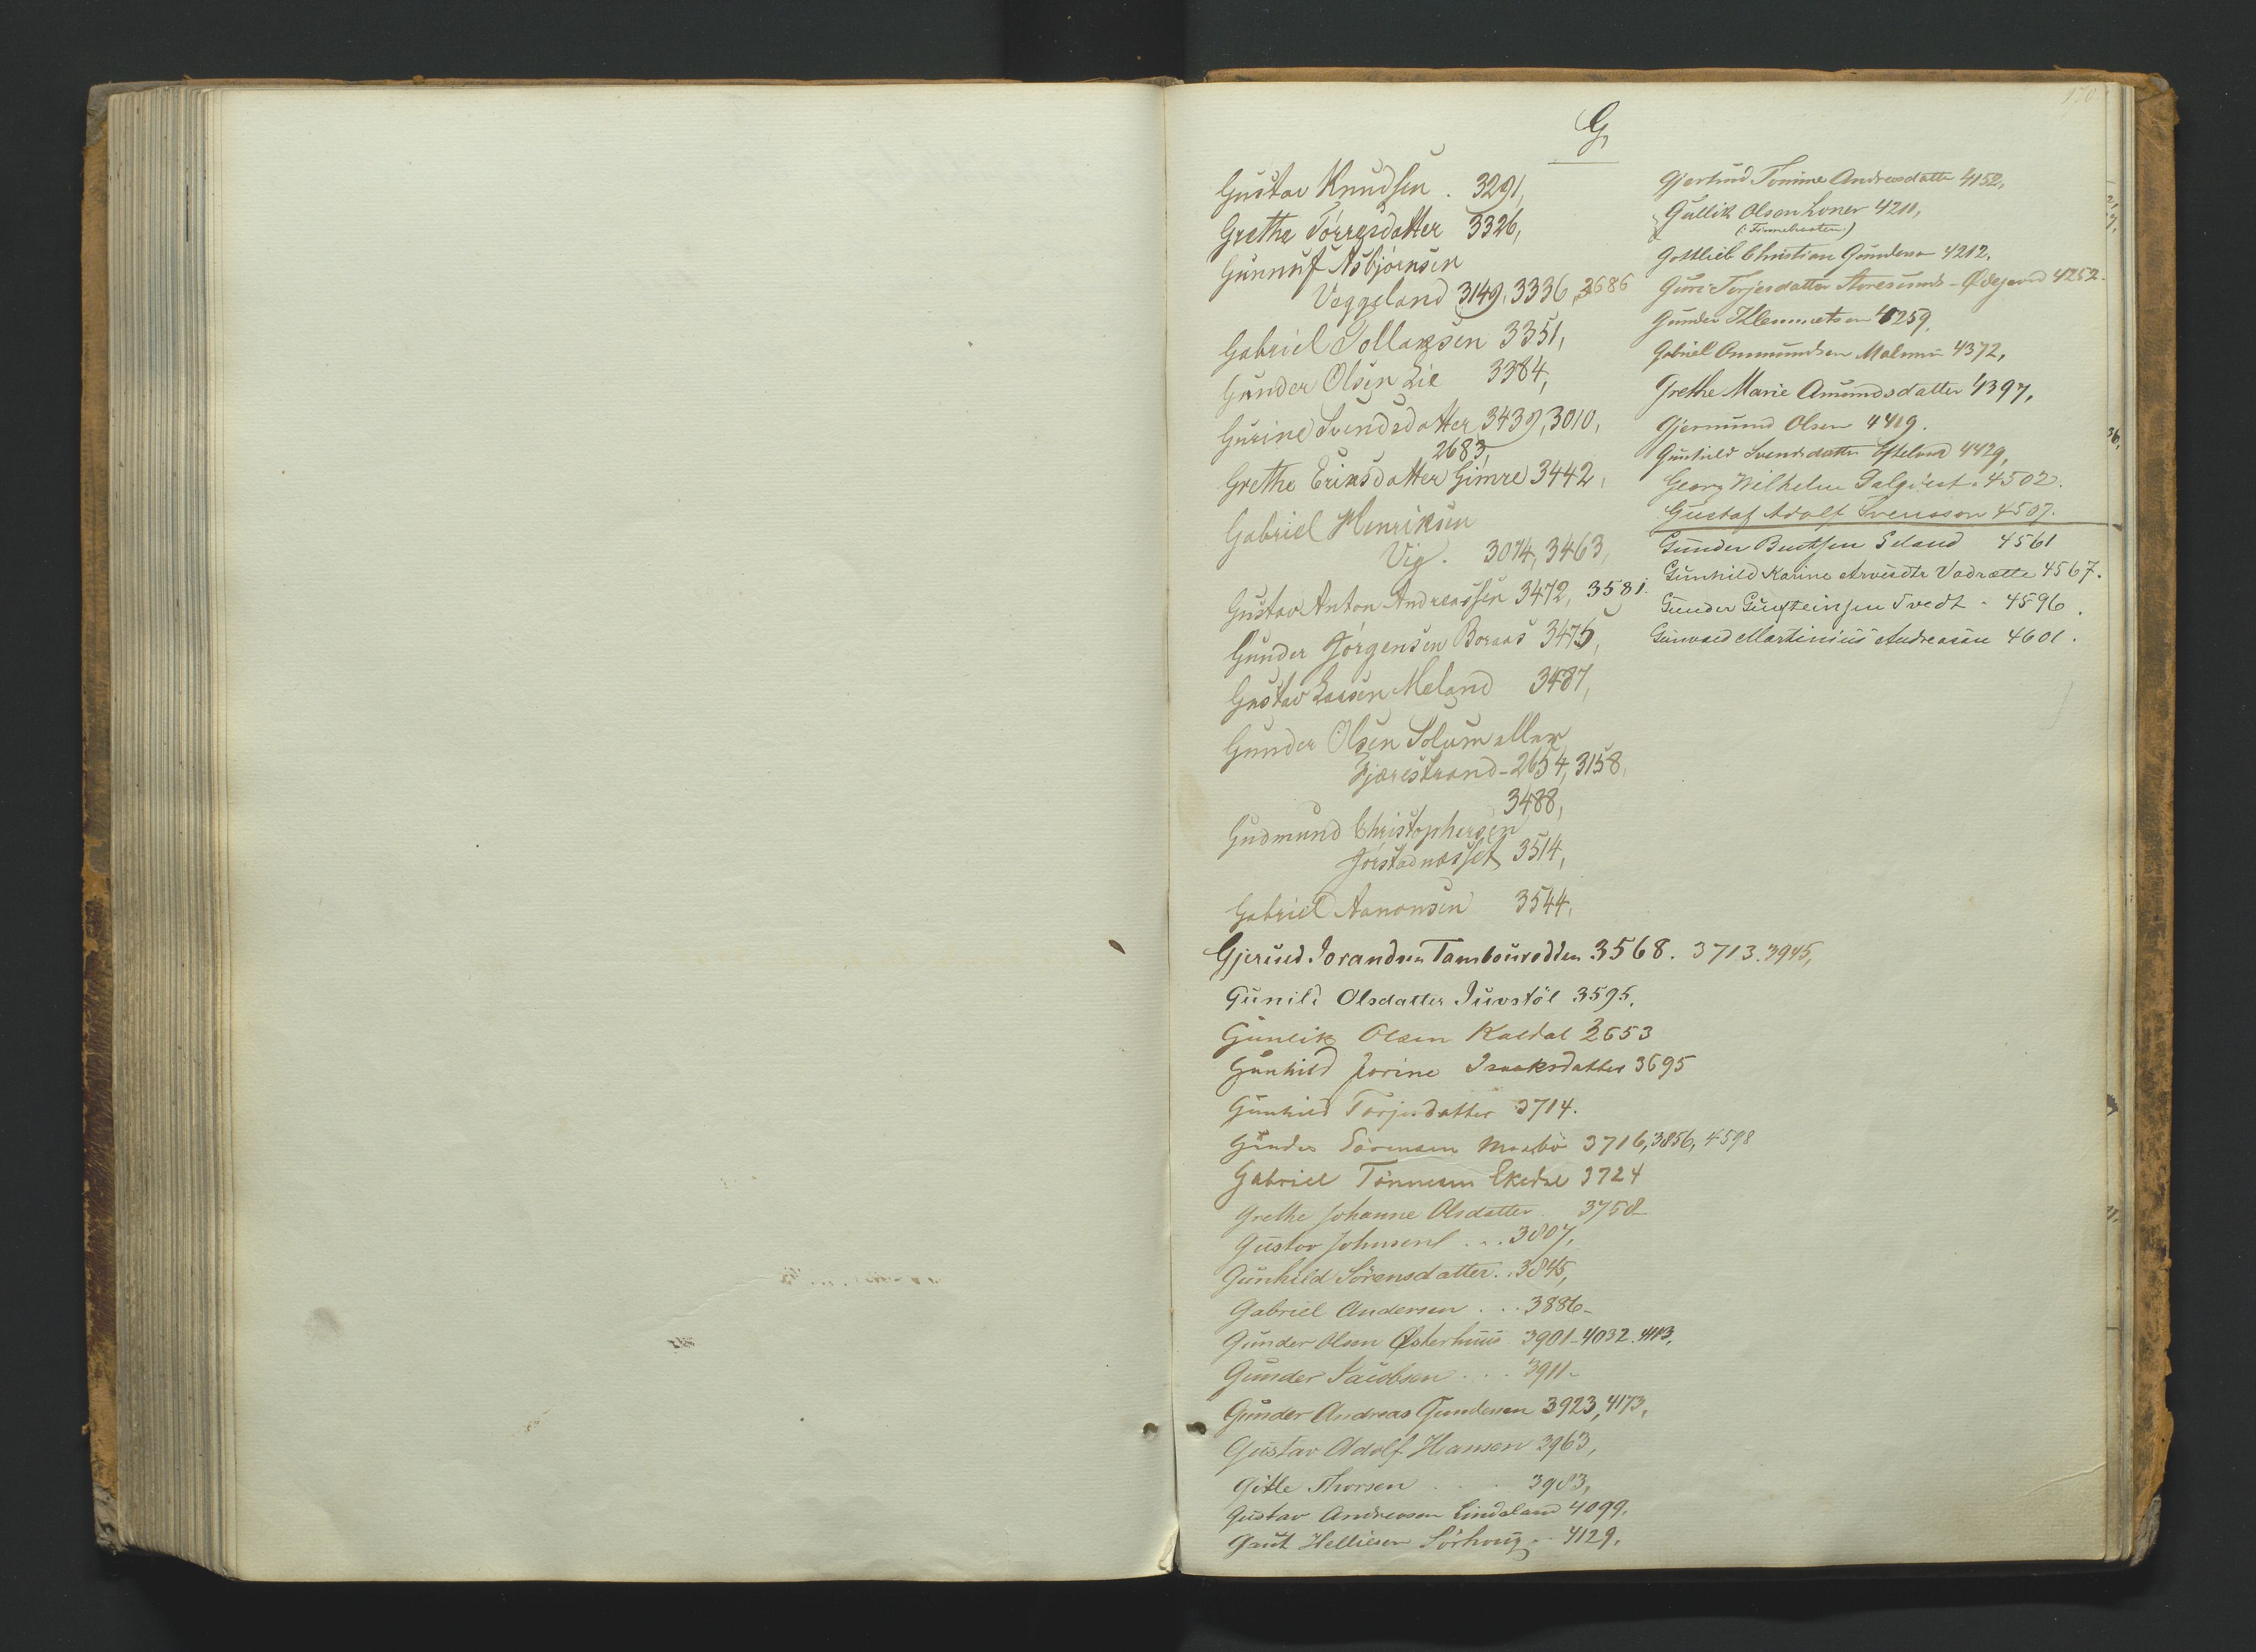 170
G
Gustav Knudsen . 3291,
Grethe Tørresdatter 3326,
Gunnuf Asbjørnsen
Veggeland 3149, 3336, 3686
Gabriel Tollaksen 3351,
Gunder Olsen Lie 3384,
Gurine Svendsdatter 3439, 3010,
2683,
Grethe Eriksdatter Gimre 3442,
Gabriel Henriksen
Vig. 3074, 3463,
Gustav Anton Andreassen 3472, 3581.
Gunder Jørgensen Boraas 3475,
Gustav Larsen Meland 3487,
Gunder Olsen Solum eller
Gjærestrand - 2654, 3158,
3488,
Gudmund Christophersen
Jørstadnæsset 3514,
Gabriel Aanonsen 3544,
Gjeruld Jorandsen Tambourodden 3568. 3713. 3945,
Gunild Olsdatter Juvstöl 3595.
Gunleik Olsen Kaldal 3653
Gunhild Jorine Isaaksdatter 3695
Gunhild Torjusdatter 3714.
Gunder Sörensen Mosbö 3716, 3856, 4598
Gabriel Tönnesen Ekedal 3724
Grethe Johanne Olsdatter . 3758
Gustav Johnsen . . . 3807,
Gunhild Sörensdatter . . 3845,
Gabriel Andersen . . . 3886-
Gunder Olsen Østerhuus 3901-4032. 4113,
Gunder Jacobsen . . . 3911-
Gunder Andreas Gundersen 3923, 4173,
Gustav Adolf Hansen 3963,
Gitle Thorsen . . . 3983,
Gustav Andreasen Lindeland 4099.
Gaut Helliesen Sörhoug . . 4129.
Gjertrud Tomine Andreasdatter 4152,
Gullik Olsen Loner 4211,
Gottlieb Christian Gundersen 4212.
Guri Torjesdatter - Ødegaard 4252.
Gunder Klemmetsen 4259,
Gabriel Ommundsen 4372,
Grethe Marie Amundsdatter 4397,
Gjermund Olsen 4419.
Gunhild Svendsdatter Eftelund 4429,
Georg Wilhelm Palquist . 4502.
Gustaf Adolf Svensson 4507.
Gunder Bentsen Seland 4561
Gunhild Karine Arvesdtr Vadrette 4567.
Gunder Gunsteinsen Tvedt . 4596.
Gunvald Martinius Andreasen 4601.